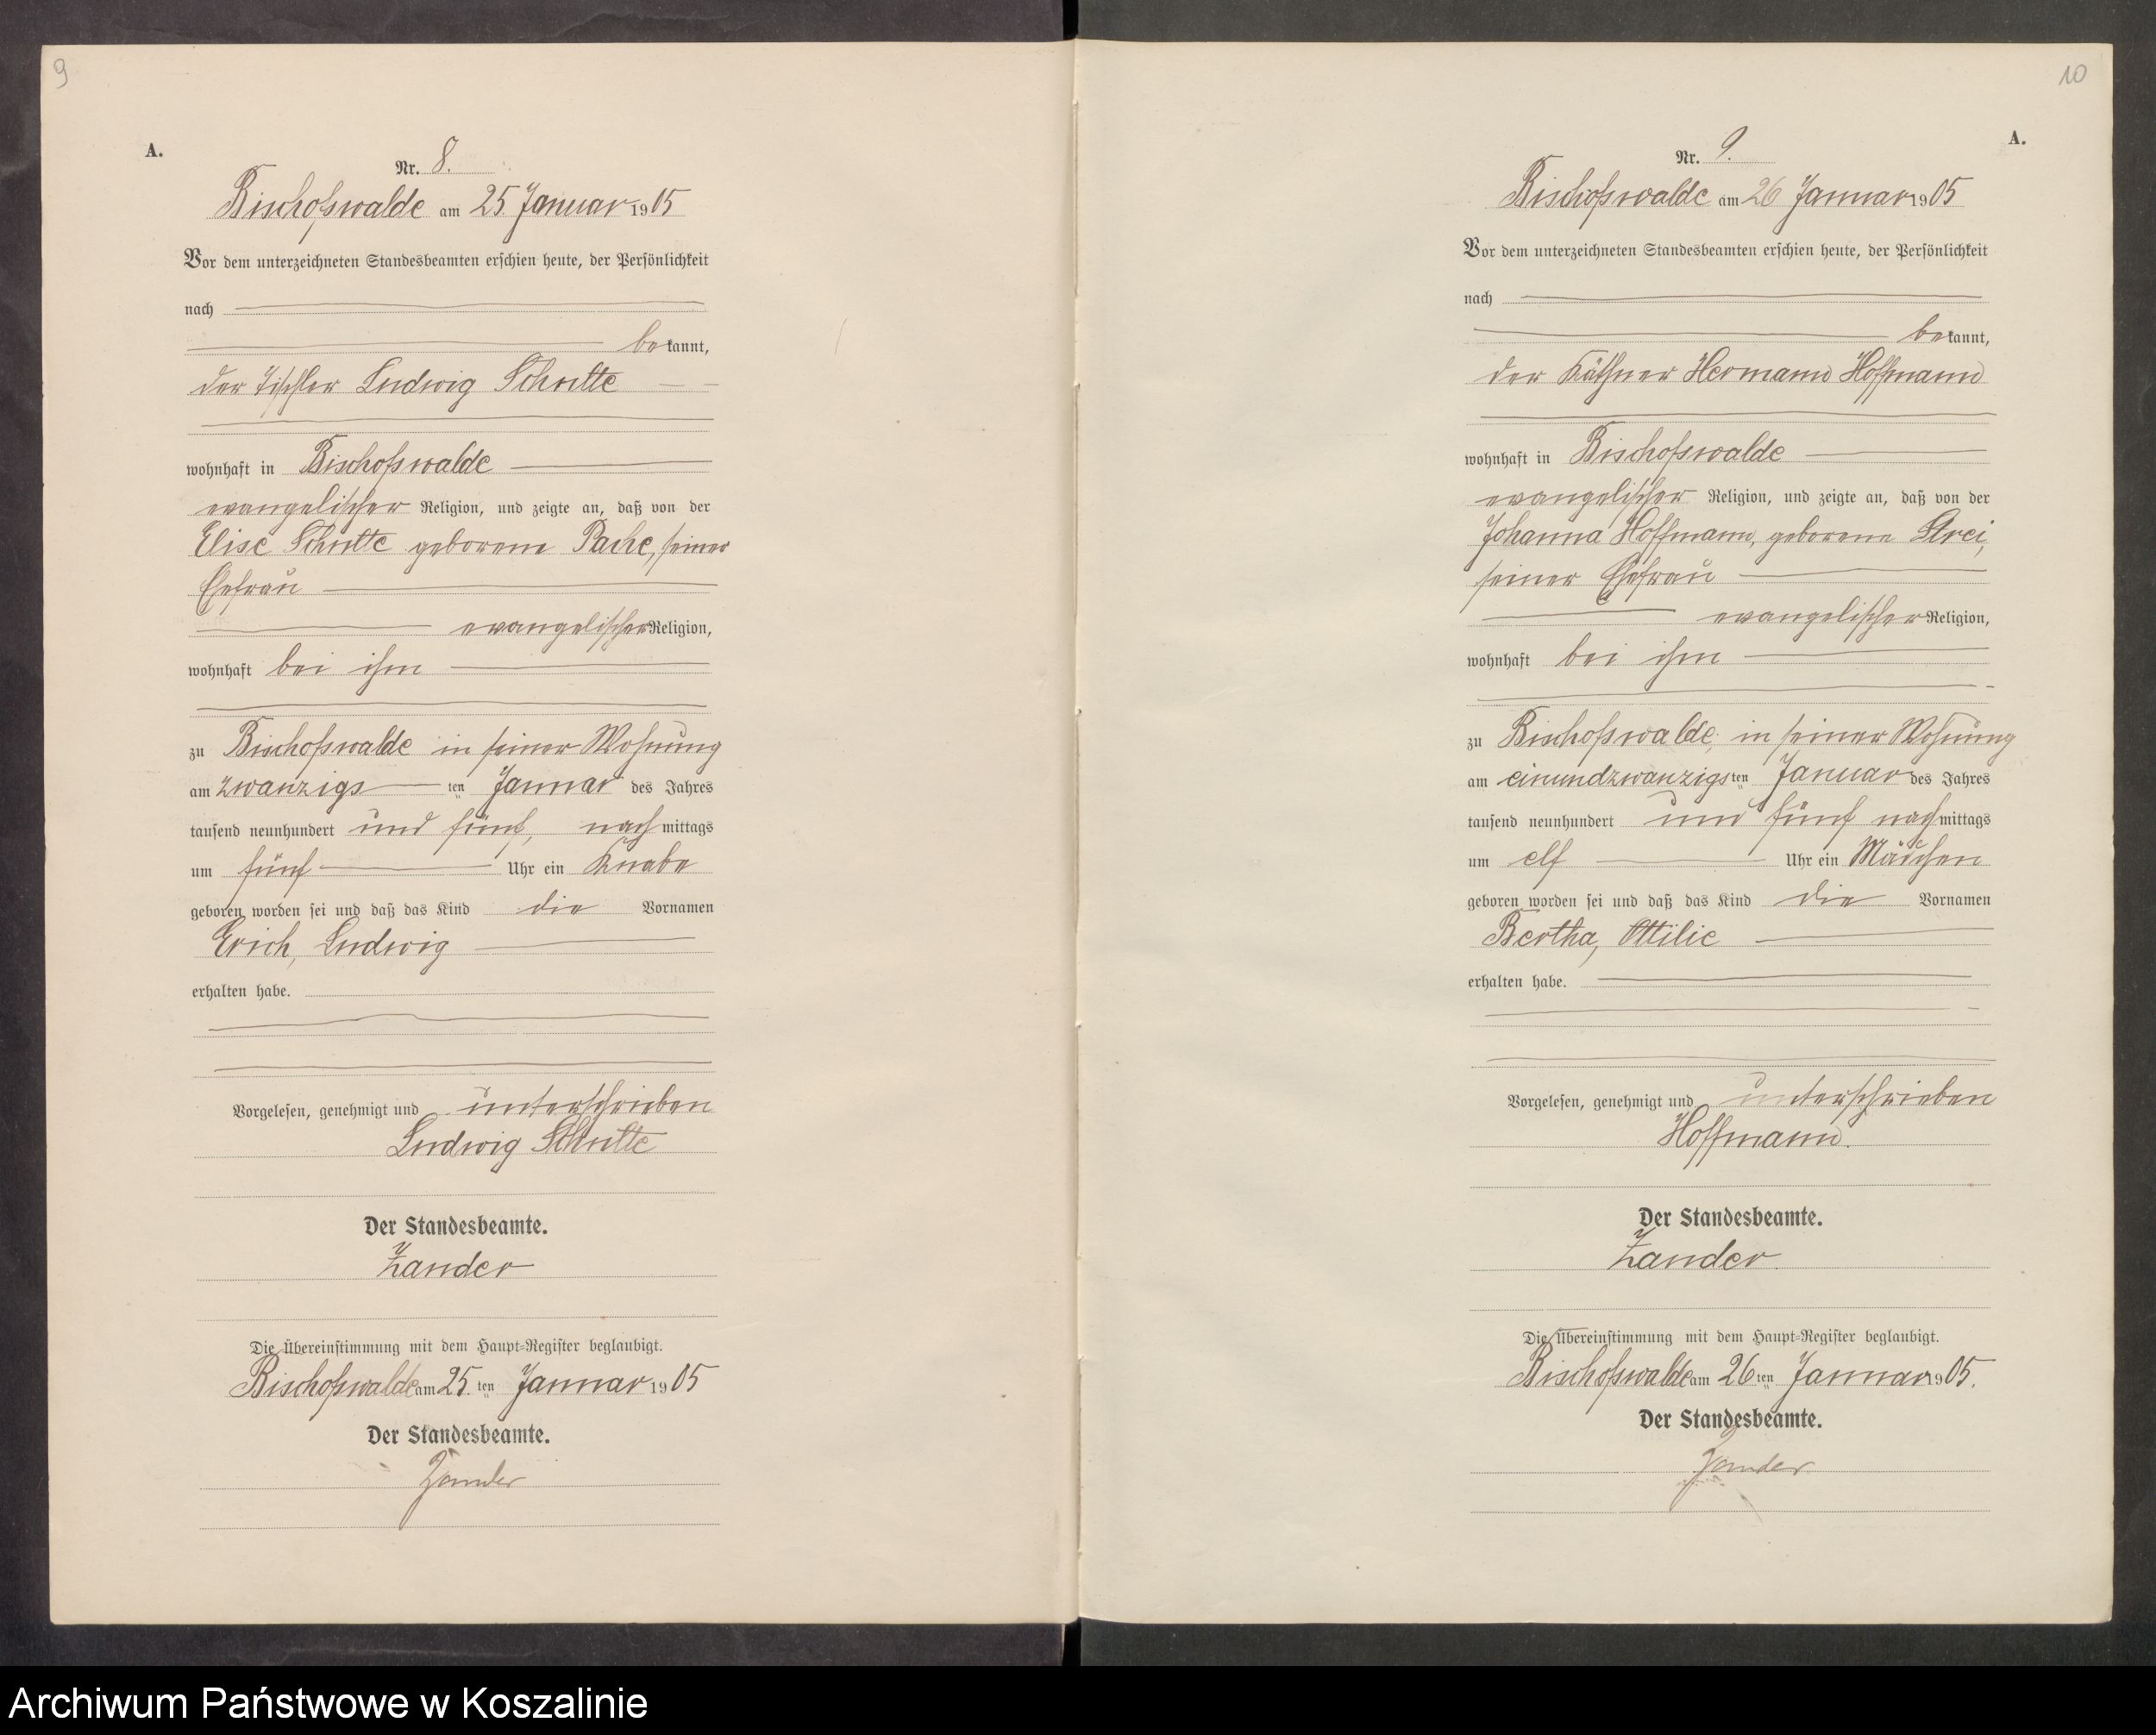 9
A.
Nr. 8.
Bischofswalde am 25. Januar 1905
Vor dem unterzeichneten Standesbeamten erschien heute, der Persönlichkeit
nach
bekannt,
der Tischler Ludwig Schulte
wohnhaft in Bischofswalde
evangelischer Religion, und zeigte an, daß von der
Elise Schulte geborene Pache, seiner
Ehefrau
evangelischer Religion,
wohnhaft bei ihm
zu Bischofswalde in seiner Wohnung
am zwanzigsten Januar des Jahres
tausend neunhundert und fünf, nachmittags
um fünf Uhr ein Knabe
geboren worden sei und daß das Kind die Vornamen
Erich, Ludwig
erhalten habe.
Vorgelesen, genehmigt und unterschrieben
Ludwig Schulte
Der Standesbeamte.
Zander
Die Übereinstimmung mit dem Haupt-Register beglaubigt.
Bischofswalde am 25. ten Januar 1905
Der Standesbeamte.
Zander
10
A.
Nr. 9.
Bischofswalde am 26 Januar 1905
Vor dem unterzeichneten Standesbeamten erschien heute, der Persönlichkeit
nach
bekannt,
der Käthner Hermann Hoffmann
wohnhaft in Bischofswalde
evangelischer Religion, und zeigte an, daß von der
Johanna Hoffmann, geborene
seiner Ehefrau
evangelischer Religion,
wohnhaft bei ihm
zu Bischofswalde, in seiner Wohnung
am einundzwanzigsten Januar des Jahres
tausend neunhundert und fünf nachmittags
um elf Uhr ein Mädchen
geboren worden sei und daß das Kind die Vornamen
Bertha, Ottilie
erhalten habe.
Vorgelesen, genehmigt und unterschrieben
Hoffmann.
Der Standesbeamte.
Zander.
Die Übereinstimmung mit dem Haupt-Register beglaubigt.
Bischofswalde am 26ten Januar 1905.
Der Standesbeamte.
Zander
Archiwum Państwowe w Koszalinie